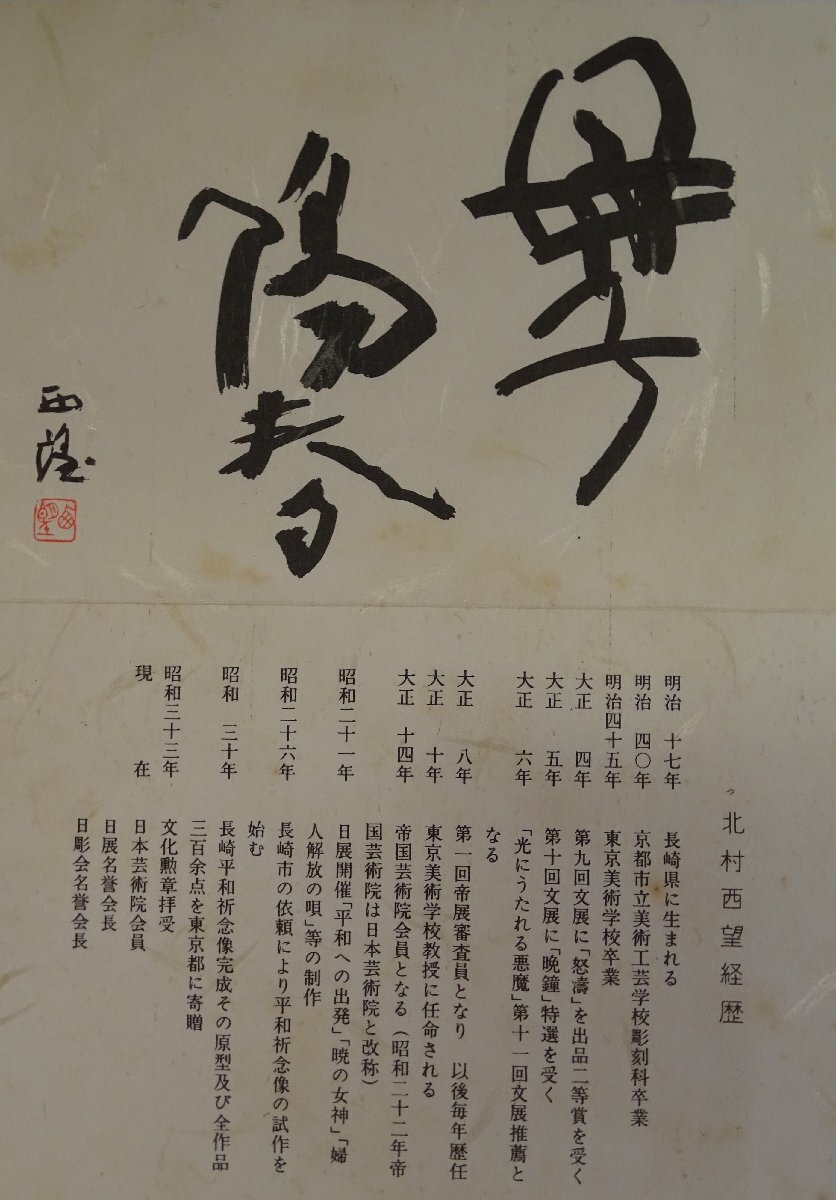 陽春
西望
北村西望経歴
明治 十七年 長崎県に生まれる
明治 四〇年 京都市立美術工芸学校彫刻科卒業
明治四十五年 東京美術学校卒業
大正 四年 第九回文展に「怒濤」を出品二等賞を受く
大正 五年 第十回文展に「晩鐘」特選を受く
大正 六年 「光にうたれる悪魔」第十一回文展推薦と
なる
大正 八年 第一回帝展審査員となり 以後毎年歴任
大正 十年 東京美術学校教授に任命される
大正 十四年 帝国芸術院会員となる(昭和二十二年帝
国芸術院は日本芸術院と改称)
昭和二十一年 日展開催「平和への出発」「暁の女神」「婦
人解放の唄」等の制作
昭和二十六年 長崎市の依頼により平和祈念像の試作を
始む
昭和 三十年 長崎平和祈念像完成その原型及び全作品
三百余点を東京都に寄贈
昭和三十三年 文化勲章拝受
現 在 日本芸術院会員
日展名誉会長
日彫会名誉会長